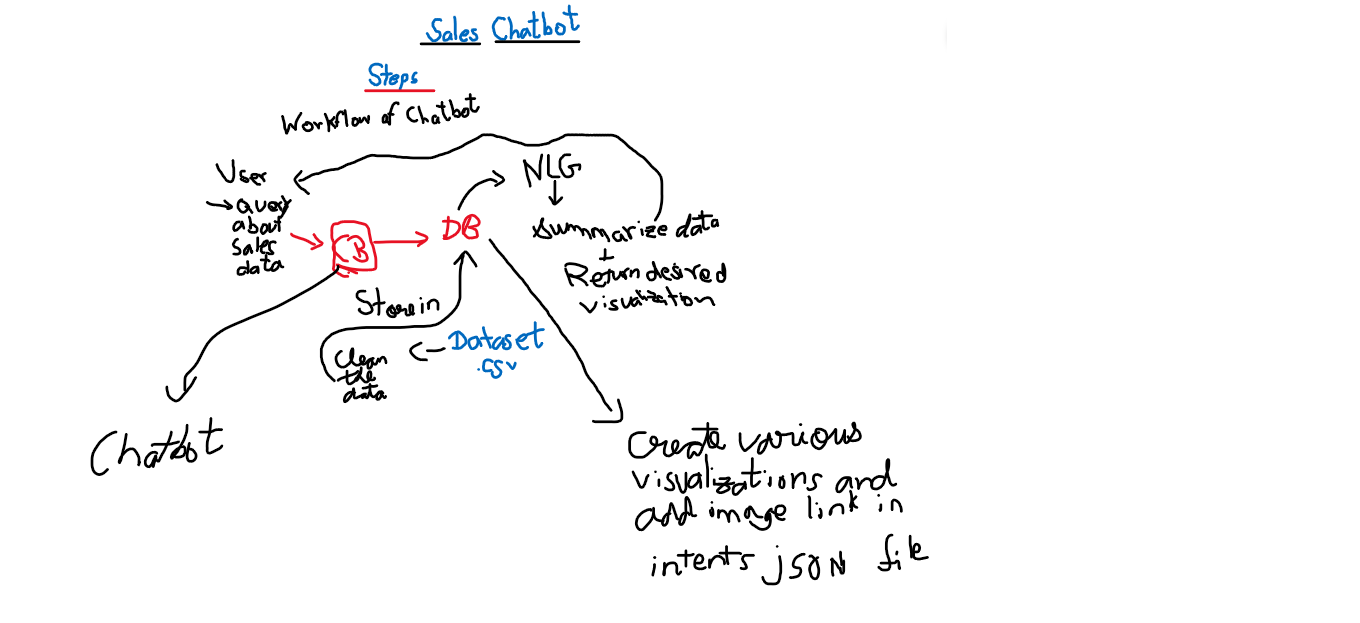 Sales Chatbot
Steps
Workflow of Chatbot
User
query
about
sales
data
CB
DB
NLG
Summarize data
+
Return desired
visualization
Store in
Dataset
.csv
Clean
the
data
Chatbot
Create various
visualizations and
add image link in
intents json file